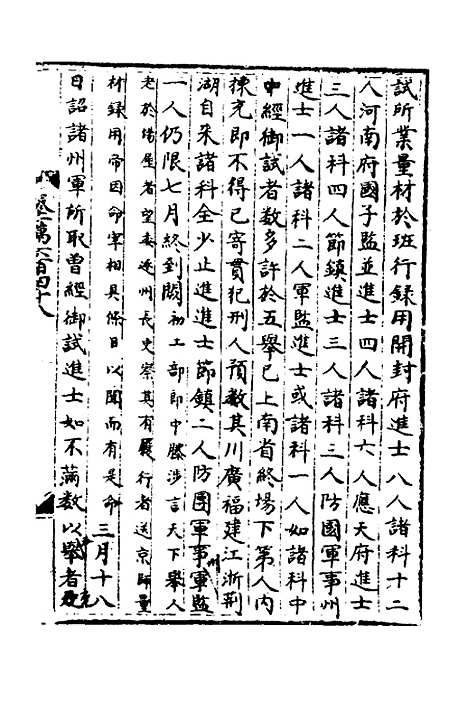 試所業量材於班行録用開封府進士八人諸科十二
人河南府國子監並進士四人諸科六人應天府進士
三人諸科四人節鎮進士三人諸科三人防團軍事州
進士一人諸科二人軍監進士或諸科一人如諸科中
中經御試者数多許於五舉已上南省終場下第人内
揀充即不得已寄貫犯刑人預数其川廣福建江浙荆
湖自来諸科全少止進進士節鎮二人防團軍事州軍監
一人仍限七月終到闕初工部郎中滕涉言天下舉人
老於場屋者望委逐州長吏察其有履行者送京師量
材録用帝因命宰相具條目以聞而有是命三月十八
日詔諸州軍所取曽經御試進士如不滿数以舉者充
卷一萬六百四十八